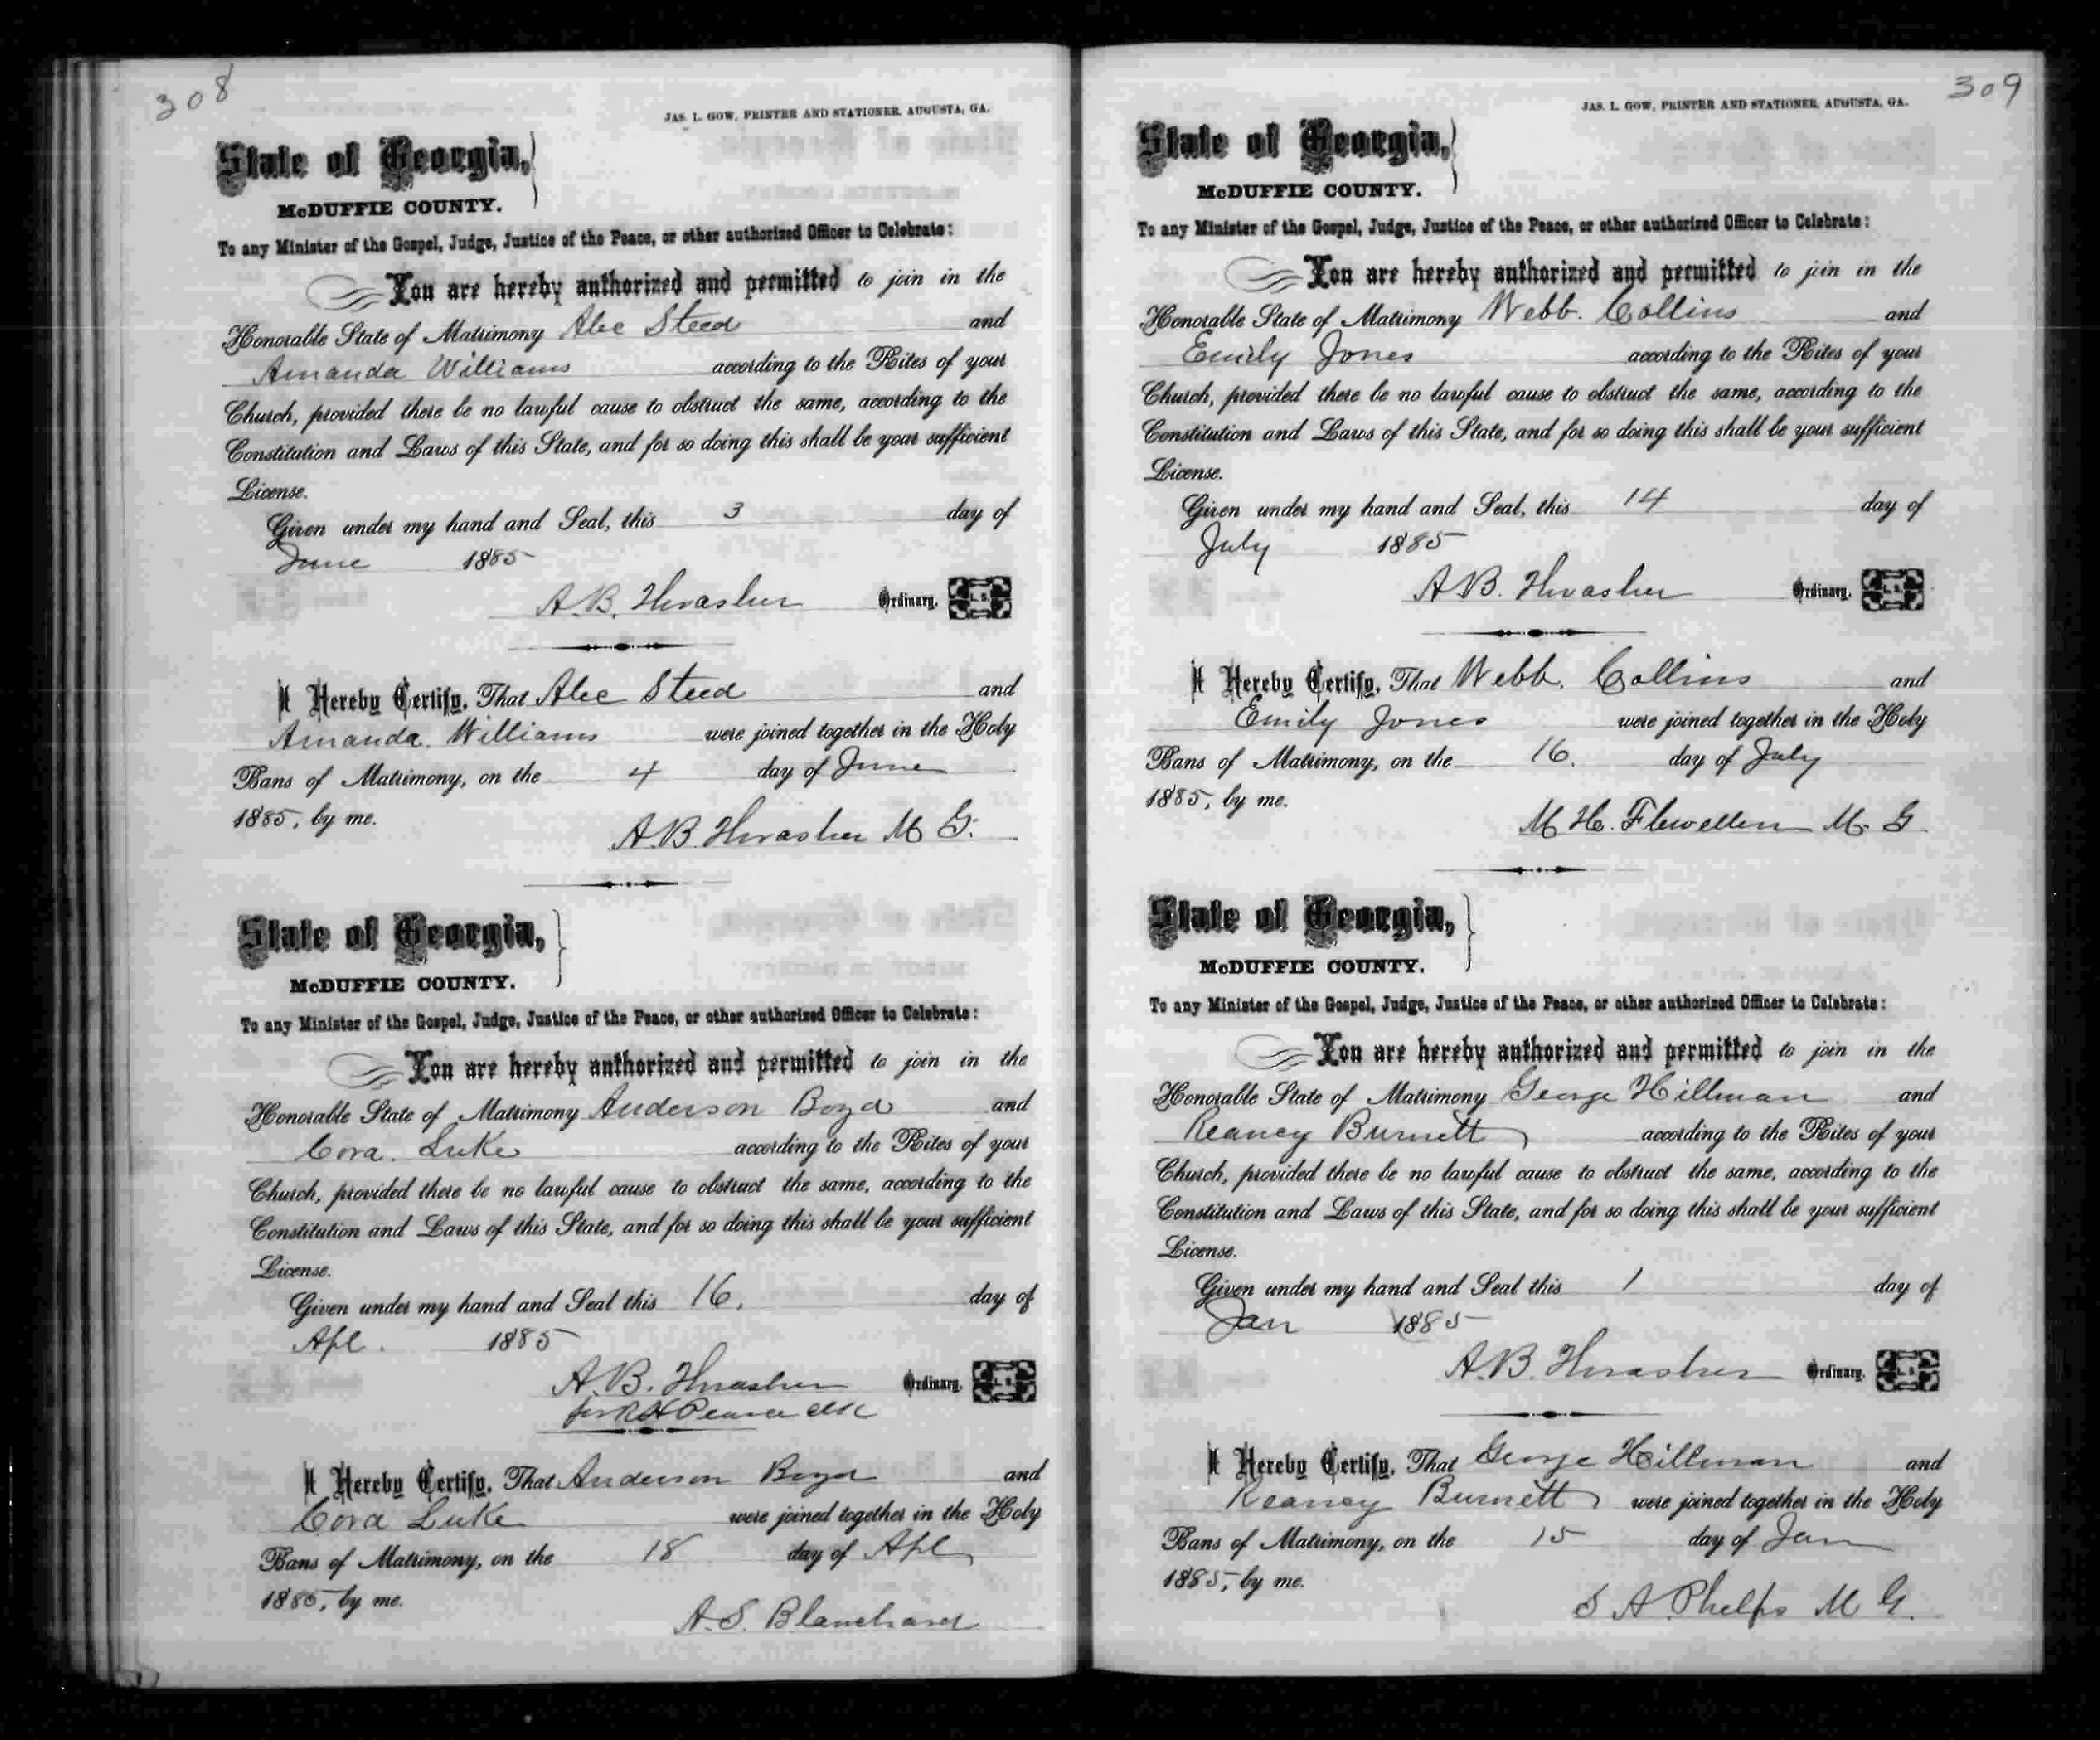 308
JAS. L. GOW, PRINTER AND STATIONER, AUGUSTA, GA.
State of Georgia,
McDUFFIE COUNTY.
To any Minister of the Gospel, Judge, Justice of the Peace, or other authorized Officer to Celebrate:
You are hereby authorized and permitted to join in the
Honorable State of Matrimony Alec Steed and
Amanda Williams according to the Rites of your
Church, provided there be no lawful cause to obstruct the same, according to the
Constitution and Laws of this State, and for so doing this shall be your sufficient
License.
Given under my hand and Seal, this 3 day of
June 1885
A.B. Thrasher Ordinary. L.S.
I Hereby Certify, That Alec Steed and
Amanda Williams were joined together in the Holy
Bans of Matrimony, on the 4 day of June
1885, by me.
A.B. Thrasher M G.
State of Georgia,
McDUFFIE COUNTY.
To any Minister of the Gospel, Judge, Justice of the Peace, or other authorized Officer to Celebrate:
You are hereby authorized and permitted to join in the
Honorable State of Matrimony Anderson Boyd and
Cora Luke according to the Rites of your
Church, provided there be no lawful cause to obstruct the same, according to the
Constitution and Laws of this State, and for so doing this shall be your sufficient
License.
Given under my hand and Seal this 16. day of
Apl. 1885
A.B. Thrasher Ordinary. L.S.
for R H Pearce
I Hereby Certify, That Anderson Boyd and
Cora Luke were joined together in the Holy
Bans of Matrimony, on the 18 day of Apl
1885, by me.
A.S. Blanchard
309
JAS. L. GOW, PRINTER AND STATIONER, AUGUSTA, GA.
State of Georgia,
McDUFFIE COUNTY.
To any Minister of the Gospel, Judge, Justice of the Peace, or other authorized Officer to Celebrate:
You are hereby authorized and permitted to join in the
Honorable State of Matrimony Webb. Collins and
Emily Jones according to the Rites of your
Church, provided there be no lawful cause to obstruct the same, according to the
Constitution and Laws of this State, and for so doing this shall be your sufficient
License.
Given under my hand and Seal, this 14 day of
July 1885
A.B. Thrasher Ordinary. L.S.
I Hereby Certify, That Webb. Collins and
Emily Jones were joined together in the Holy
Bans of Matrimony, on the 16. day of July
1885, by me.
M. H. Flewellen M. G
State of Georgia,
McDUFFIE COUNTY.
To any Minister of the Gospel, Judge, Justice of the Peace, or other authorized Officer to Celebrate:
You are hereby authorized and permitted to join in the
Honorable State of Matrimony George Hillman and
Reaney Burnett according to the Rites of your
Church, provided there be no lawful cause to obstruct the same, according to the
Constitution and Laws of this State, and for so doing this shall be your sufficient
License.
Given under my hand and Seal this 1 day of
Jan 1885
A.B. Thrasher Ordinary. L.S.
I Hereby Certify, That George Hillman and
Reaney Burnett were joined together in the Holy
Bans of Matrimony, on the 15 day of Jan
1885, by me.
S A. Phelps M G.